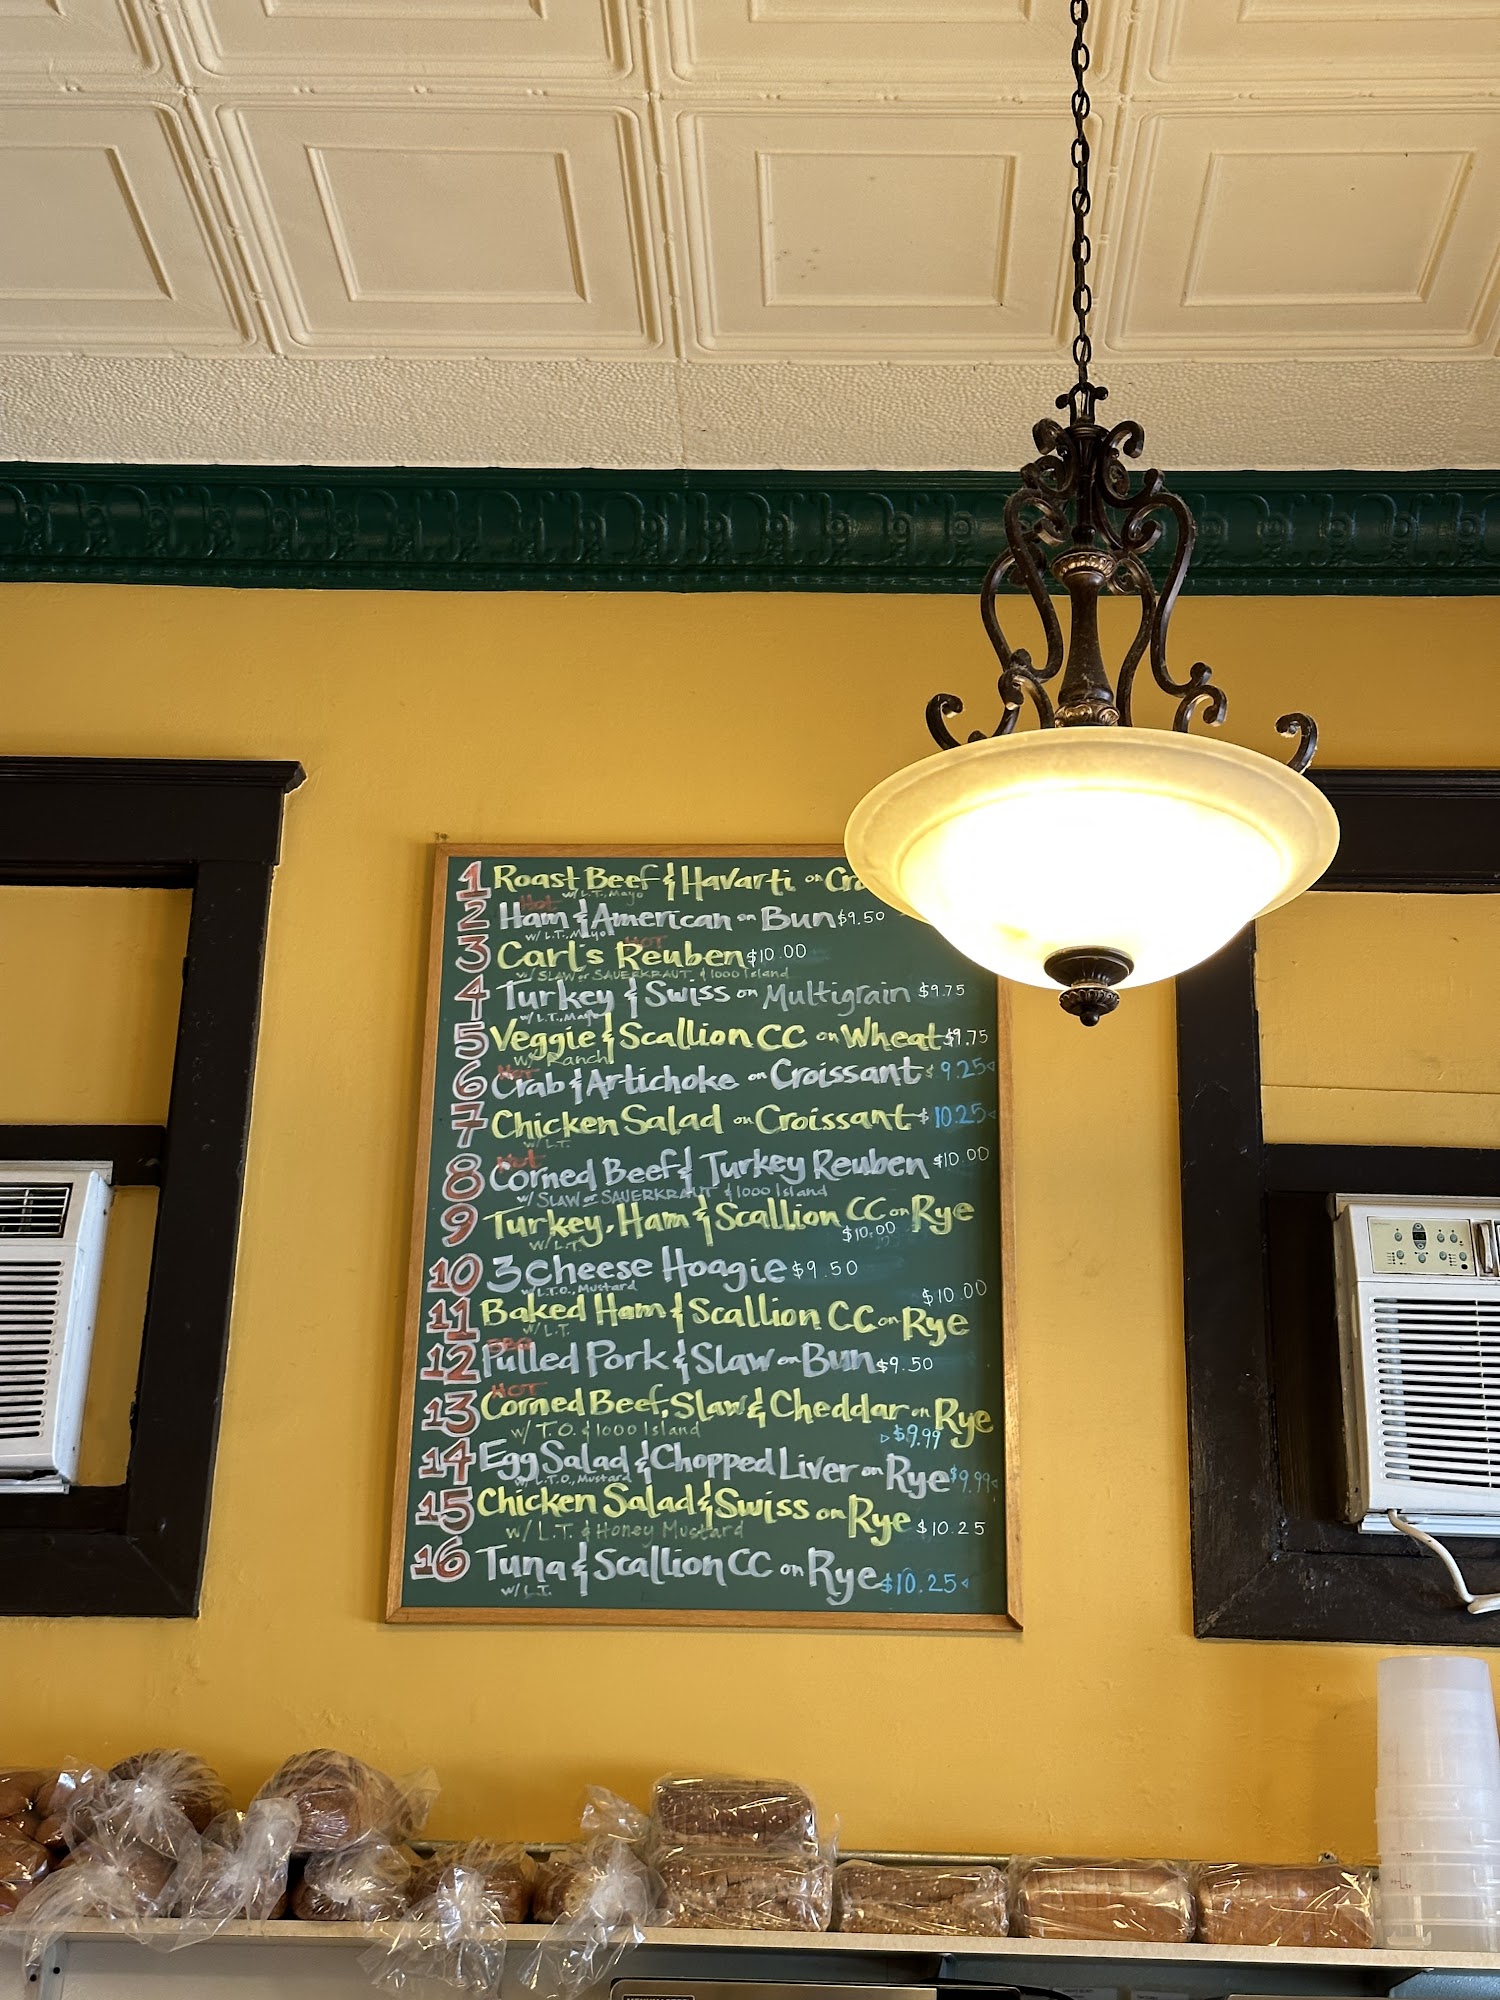 1 Roast Beef & Havarti on Cro
w/ L.T., Mayo
Hot
2 Ham & American on Bun $9.50
w/ L.T., Mayo
HOT
3 Carl's Reuben $10.00
w/ SLAW or SAUERKRAUT & 1000 Island
4 Turkey & Swiss on Multigrain $9.75
w/ L.T., Mayo
5 Veggie & Scallion CC on Wheat $9.75
w/ Ranch
Hot
6 Crab & Artichoke on Croissant $9.25
7 Chicken Salad on Croissant $10.25
w/ L.T.
Hot
8 Corned Beef & Turkey Reuben $10.00
w/ SLAW or SAUERKRAUT & 1000 Island
9 Turkey, Ham & Scallion CC on Rye
w/ L.T. $10.00
10 3 Cheese Hoagie $9.50
w/ L.T.O., Mustard
$10.00
11 Baked Ham & Scallion CC on Rye
w/ L.T.
BBQ
12 Pulled Pork & Slaw on Bun $9.50
HOT
13 Corned Beef, Slaw & Cheddar on Rye
w/ T.O. & 1000 Island $9.99
14 Egg Salad & Chopped Liver on Rye $9.99
w/ L.T.O., Mustard
15 Chicken Salad & Swiss on Rye $10.25
w/ L.T. & Honey Mustard
16 Tuna & Scallion CC on Rye $10.25
w/ L.T.